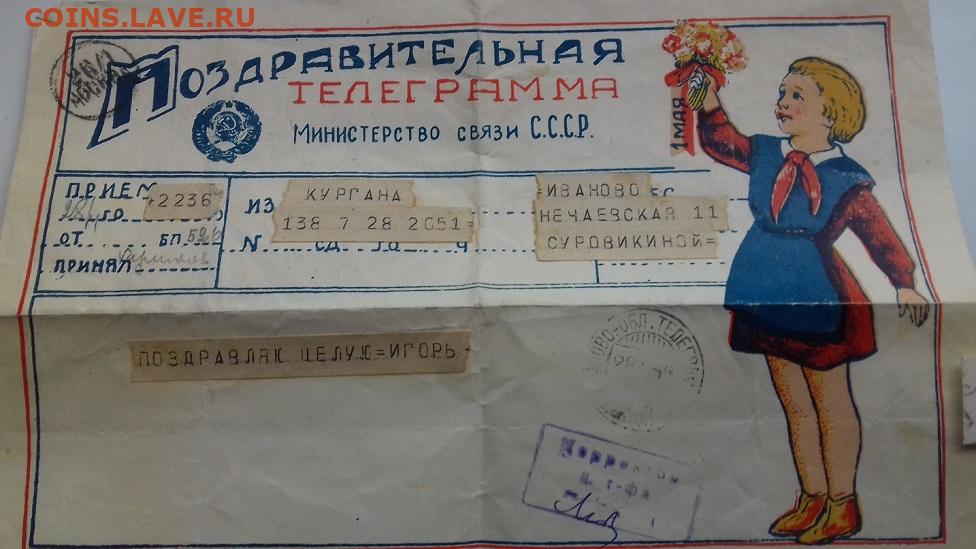 COINS.LAVE.RU
ПОЗДРАВИТЕЛЬНАЯ
ТЕЛЕГРАММА
МИНИСТЕРСТВО СВЯЗИ С.С.С.Р.
1 МАЯ
ПРИЕМ
2236
ГО
ОТ
БП
ПРИНЯЛ
ИЗ
КУРГАНА
138 7 28 2051=
N
СЛ
ГО
Ч
=ИВАНОВО
НЕЧАЕВСКАЯ 11
СУРОВИКИНОЙ=
ПОЗДРАВЛЯЮ ЦЕЛУЮ=ИГОРЬ-
ОБЛ. ТЕЛЕГРАФ
Ц. Т-ФА